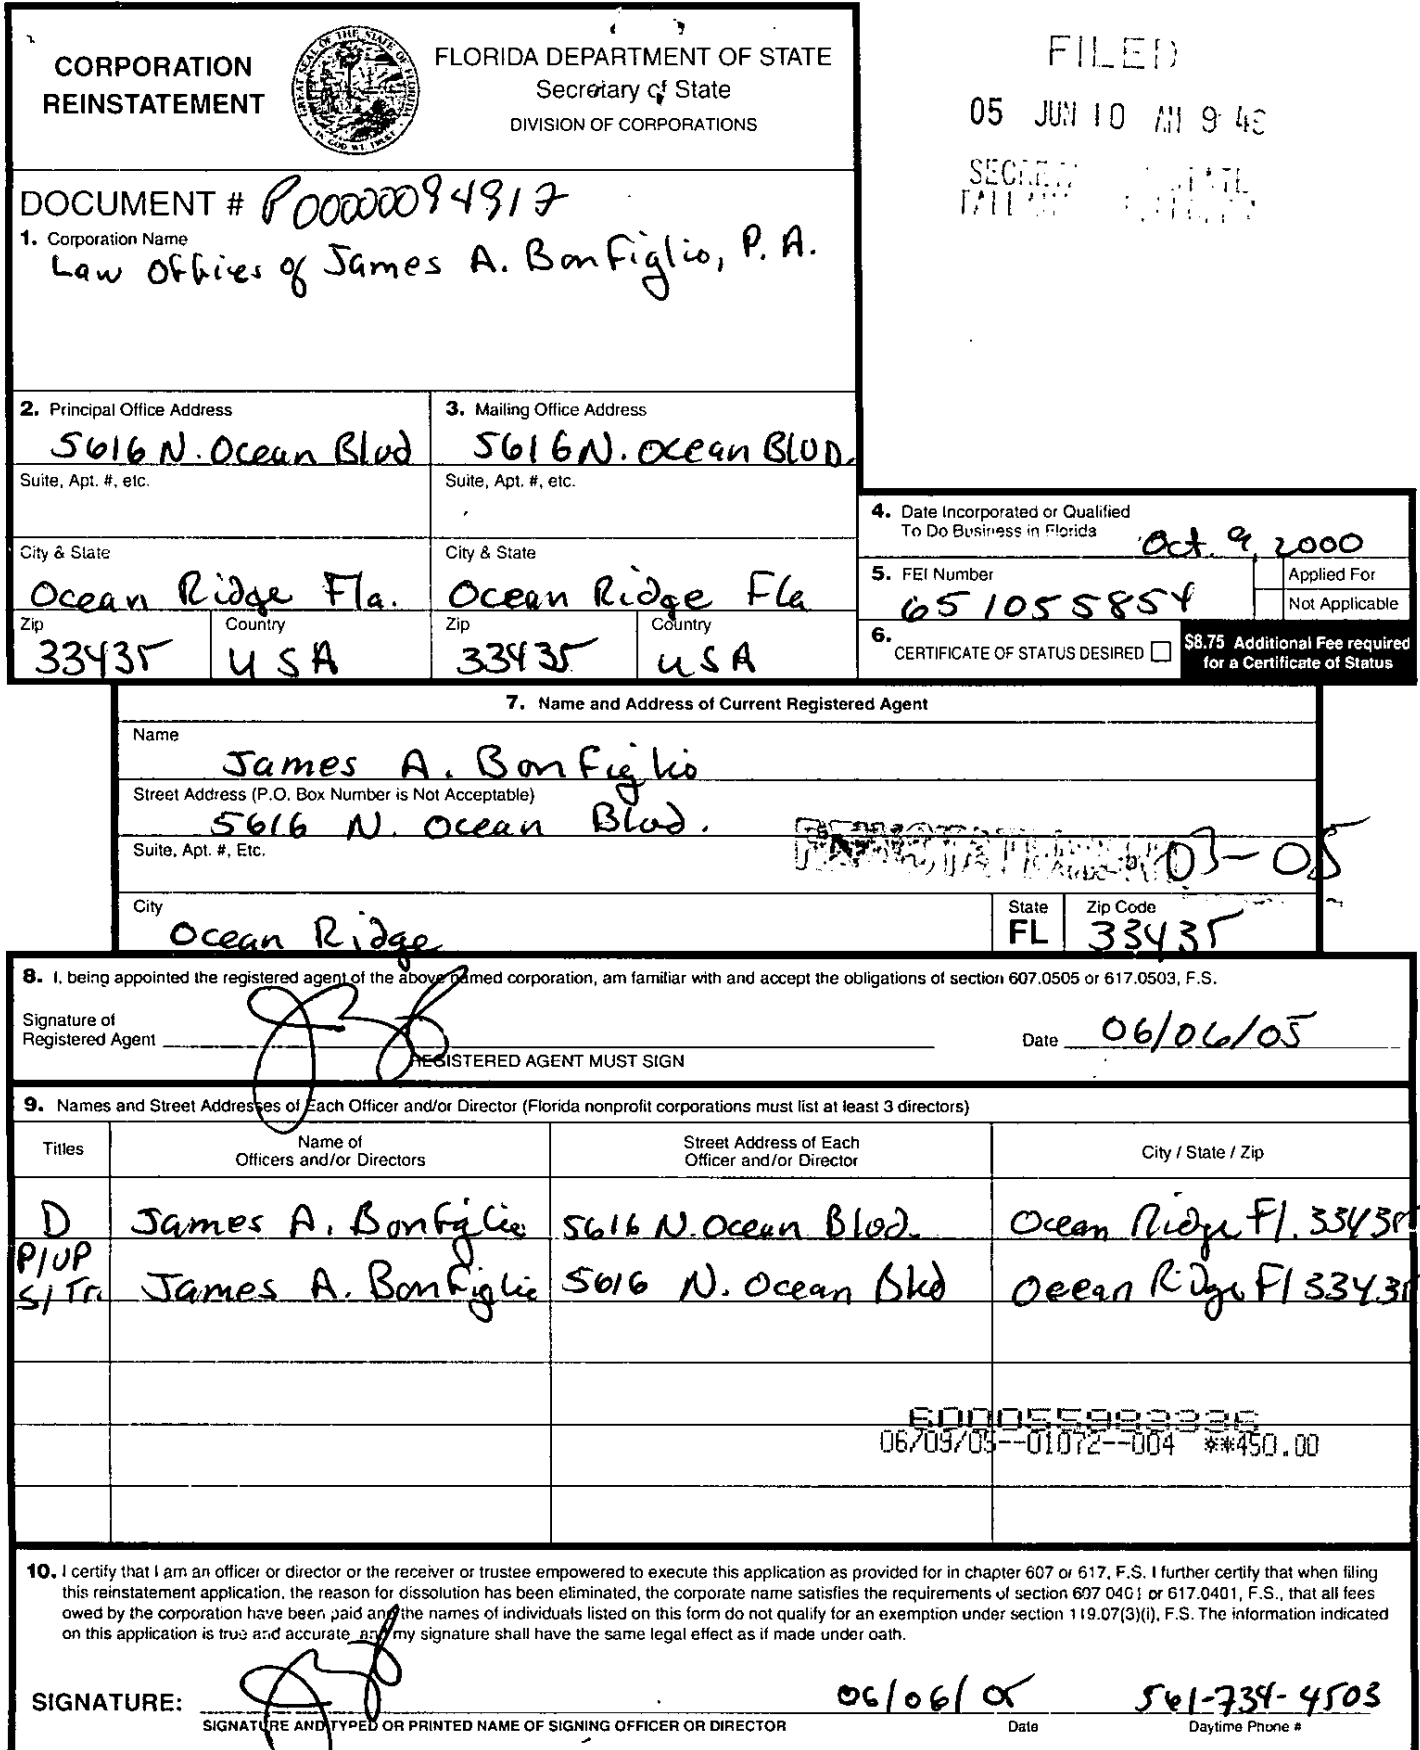 CORPORATION
REINSTATEMENT
FLORIDA DEPARTMENT OF STATE
Secretary of State
DIVISION OF CORPORATIONS
FILED
05 JUN 10 AM 9
DOCUMENT # P00000094917
1. Corporation Name
Law Offices of James A. Bonfiglio, P. A.
2. Principal Office Address
5616 N. Ocean Blvd
Suite, Apt. #, etc.
City & State
Ocean Ridge Fla.
Zip Country
33435 USA
3. Mailing Office Address
5616 N. Ocean BLVD.
Suite, Apt. #, etc.
City & State
Ocean Ridge Fla
Zip Country
33435 USA
4. Date Incorporated or Qualified
To Do Business in Florida Oct. 9, 2000
5. FEI Number
651055854
Applied For
Not Applicable
6. CERTIFICATE OF STATUS DESIRED
$8.75 Additional Fee required
for a Certificate of Status
7. Name and Address of Current Registered Agent
Name
James A. Bonfiglio
Street Address (P.O. Box Number is Not Acceptable)
5616 N. Ocean Blvd.
Suite, Apt. #, Etc.
03-05
City State Zip Code
Ocean Ridge FL 33435
8. I, being appointed the registered agent of the above named corporation, am familiar with and accept the obligations of section 607.0505 or 617.0503, F.S.
Signature of
Registered Agent Date 06/06/05
REGISTERED AGENT MUST SIGN
9. Names and Street Addresses of Each Officer and/or Director (Florida nonprofit corporations must list at least 3 directors)
Titles Name of Officers and/or Directors Street Address of Each Officer and/or Director City / State / Zip
D James A. Bonfiglio 5616 N. Ocean Blvd. Ocean Ridge Fl. 33435
P/VP
S/Tr. James A. Bonfiglio 5616 N. Ocean Blvd Ocean Ridge Fl 33435
600055993336
06/09/05--01072--004 **450.00
10. I certify that I am an officer or director or the receiver or trustee empowered to execute this application as provided for in chapter 607 or 617, F.S. I further certify that when filing
this reinstatement application, the reason for dissolution has been eliminated, the corporate name satisfies the requirements of section 607.0401 or 617.0401, F.S., that all fees
owed by the corporation have been paid and the names of individuals listed on this form do not qualify for an exemption under section 119.07(3)(i), F.S. The information indicated
on this application is true and accurate and my signature shall have the same legal effect as if made under oath.
SIGNATURE: 06/06/05 561-734-4503
SIGNATURE AND TYPED OR PRINTED NAME OF SIGNING OFFICER OR DIRECTOR Date Daytime Phone #